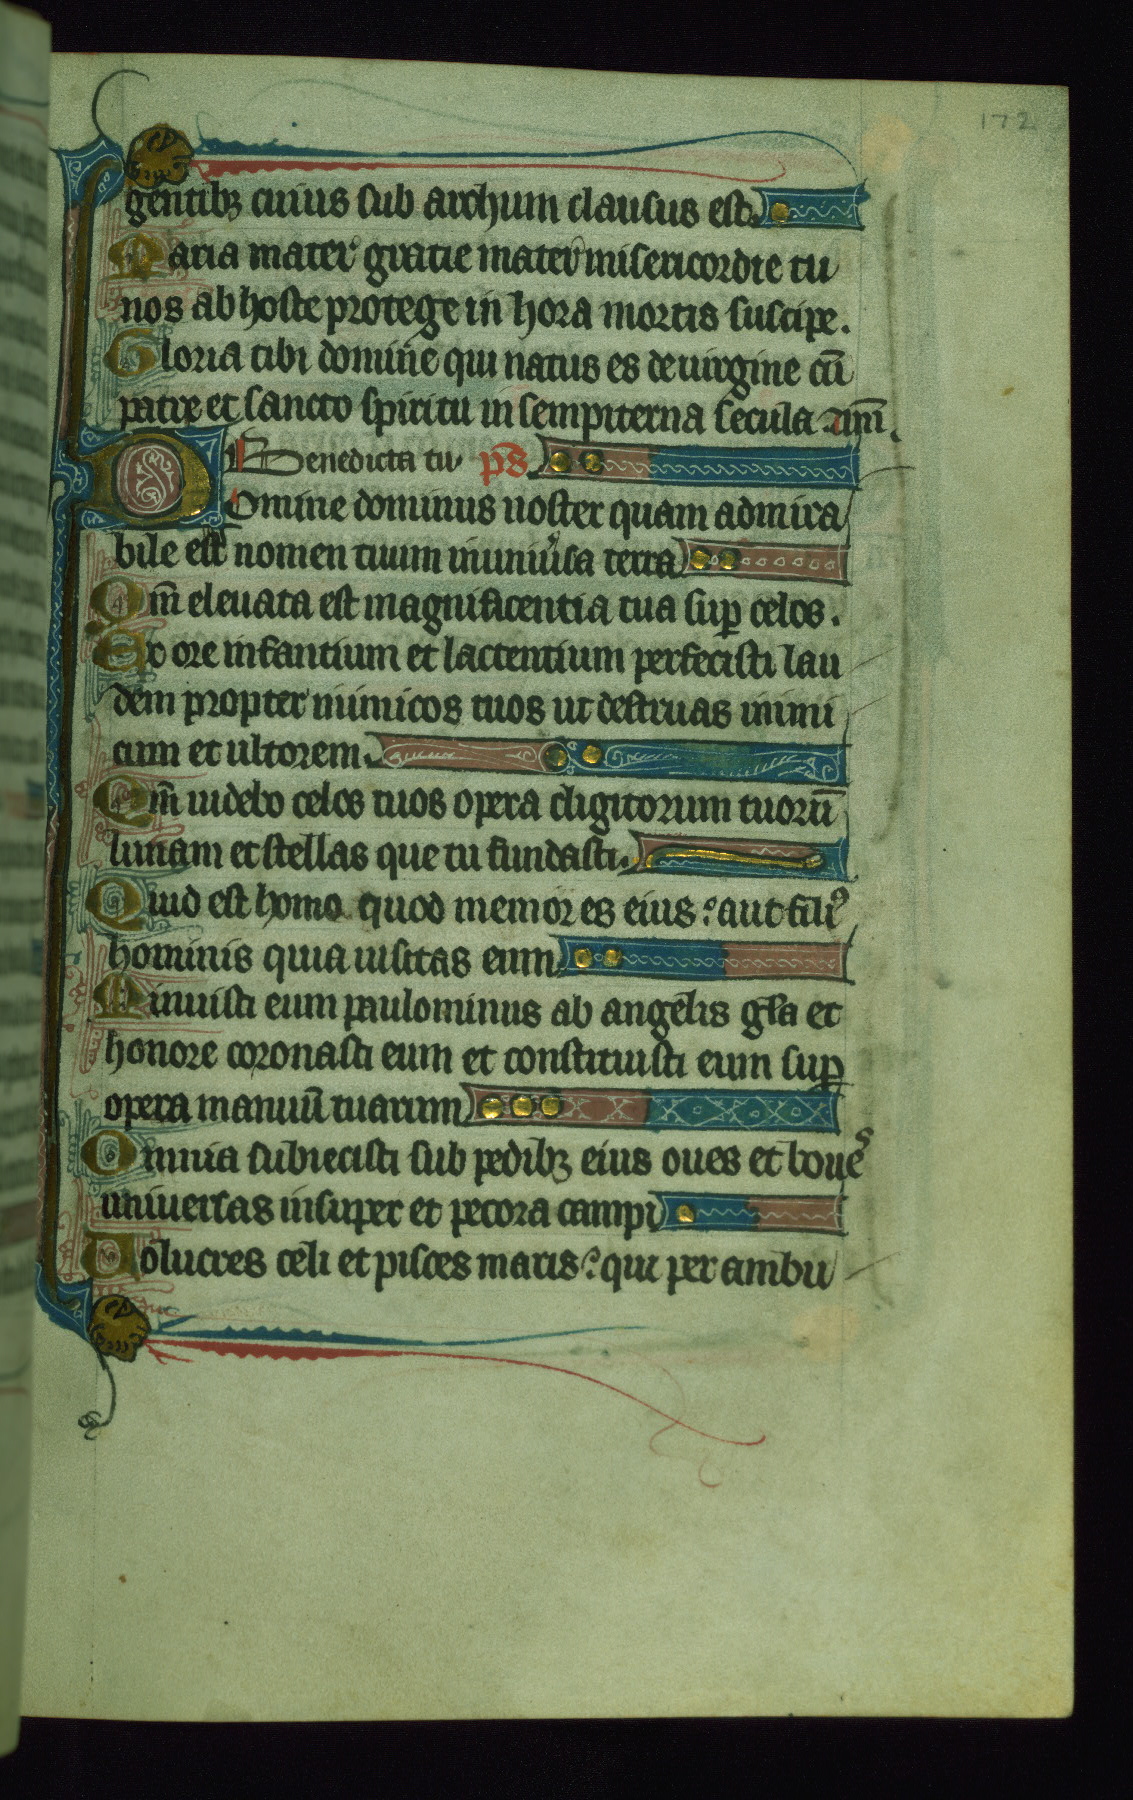 172
gentibꝫ cuius sub archum clausus est.
Maria mater gratie mater misericordie tu
nos ab hoste protege in hora mortis suscipe.
Gloria tibi domine qui natus es de uirgine cū
patre et sancto spiritu in sempiterna secula am̄.
Benedicta tu. p̄s.
Domine dominus noster quam admira
bile est nomen tuum in uniūsa terra
Qm̄ eleuata est magnificentia tua suꝑ celos.
Ex ore infantium et lactentium perfecisti lau
dem propter inimicos tuos ut destruas inimi
cum et ultorem.
Qm̄ uidebo celos tuos opera digitorum tuorū
lunam et stellas que tu fundasti.
Quid est homo quod memor es eius: aut filiꝰ
hominis quia uisitas eum
Minuisti eum paulominus ab angelis gl̄a et
honore coronasti eum et constituisti eum suꝑ
opera manuū tuarum
Omnia subiecisti sub pedibꝫ eius oues et boues
uniuersas insuper et pecora campi
Uolucres celi et pisces maris: qui per ambu